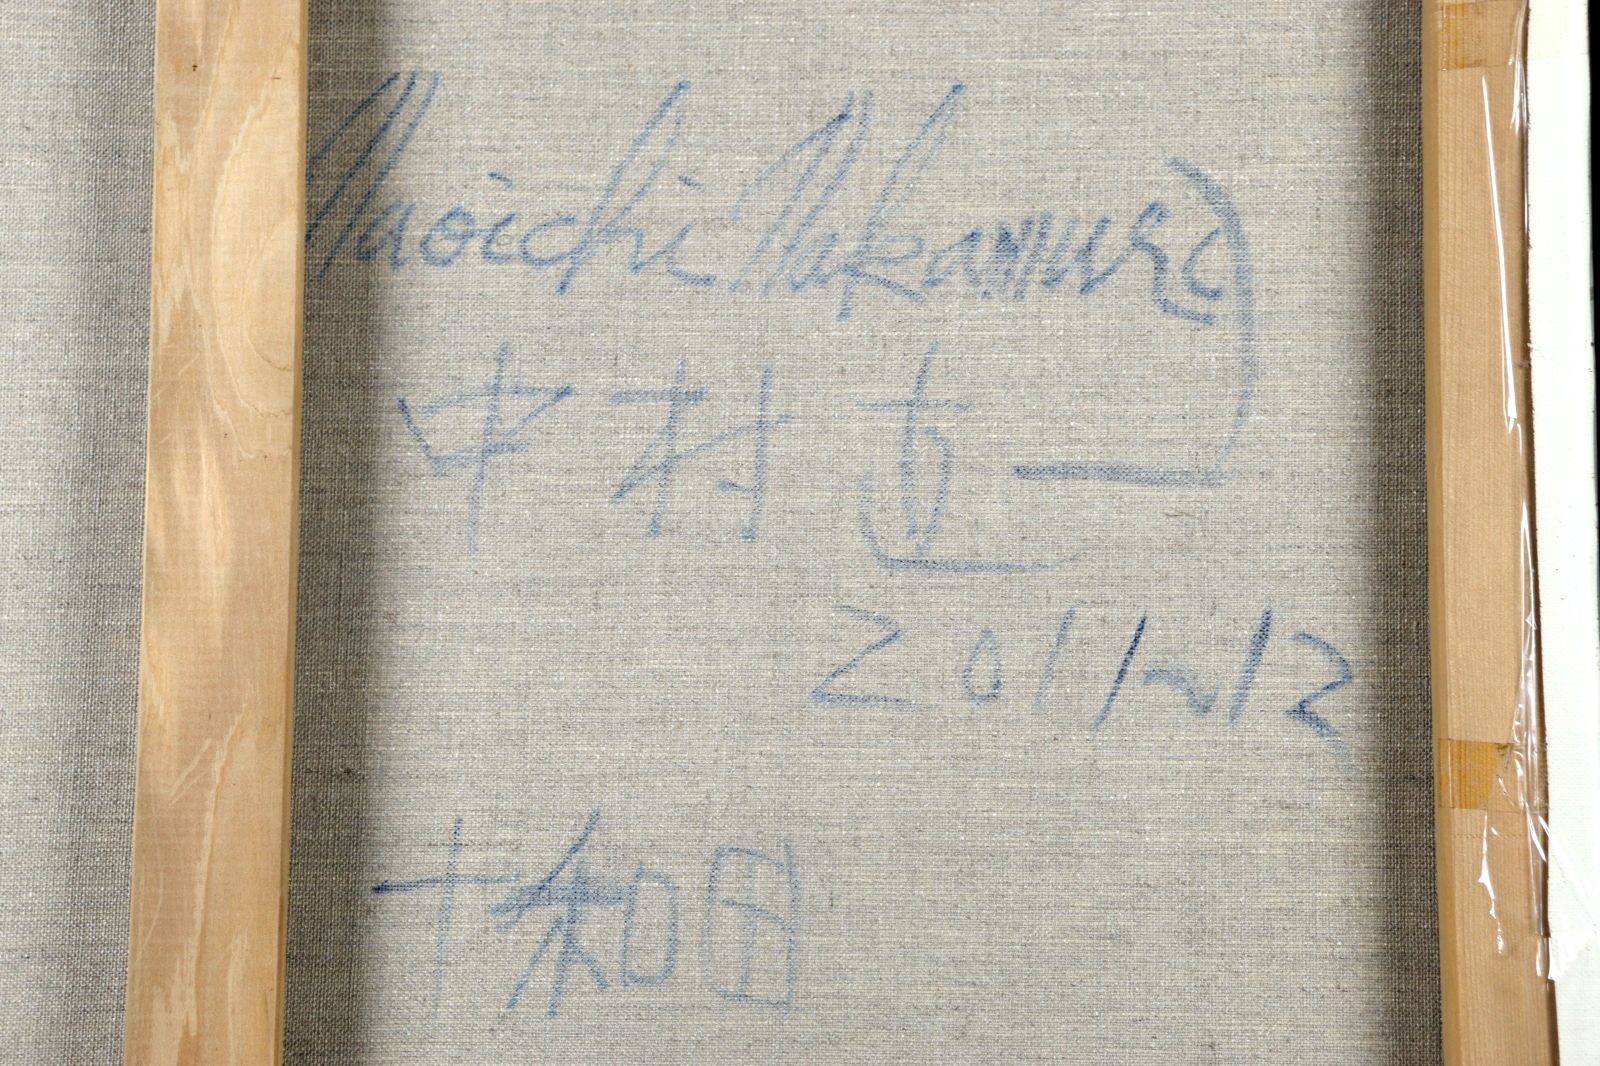 Naoichi Nakamura
中村直一
2011~12
十和田